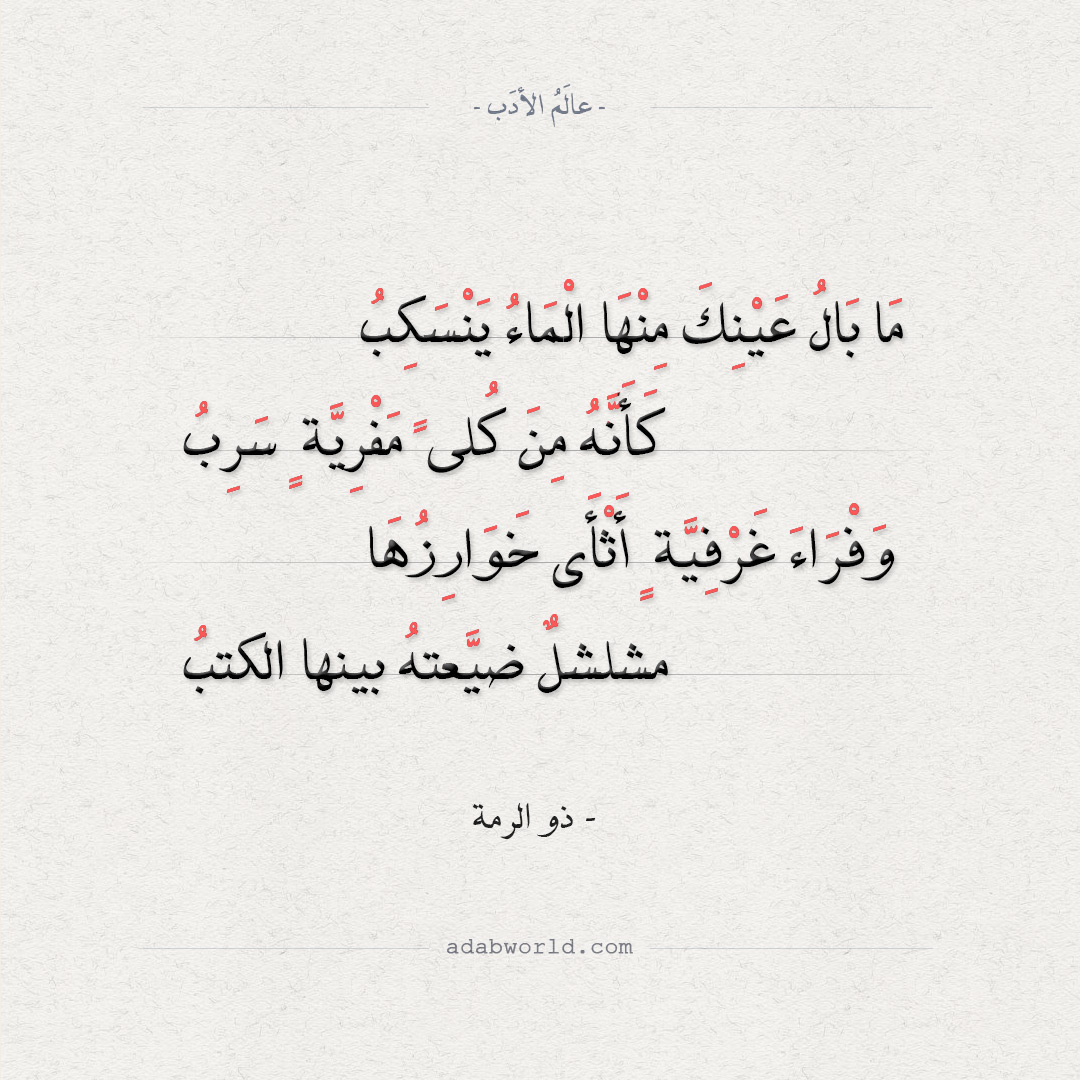 - عالَمُ الأدَب -
مَا بَالُ عَيْنِكَ مِنْهَا الْمَاءُ يَنْسَكِبُ
كَأَنَّهُ مِنَ كُلى ً مَفْرِيَّة ٍ سَرِبُ
وَفْرَاءَ غَرْفِيَّة ٍ أَثْأَى خَوَارِزُهَا
مشلشلٌ ضيَّعتهُ بينها الكتبُ
- ذو الرمة
adabworld.com